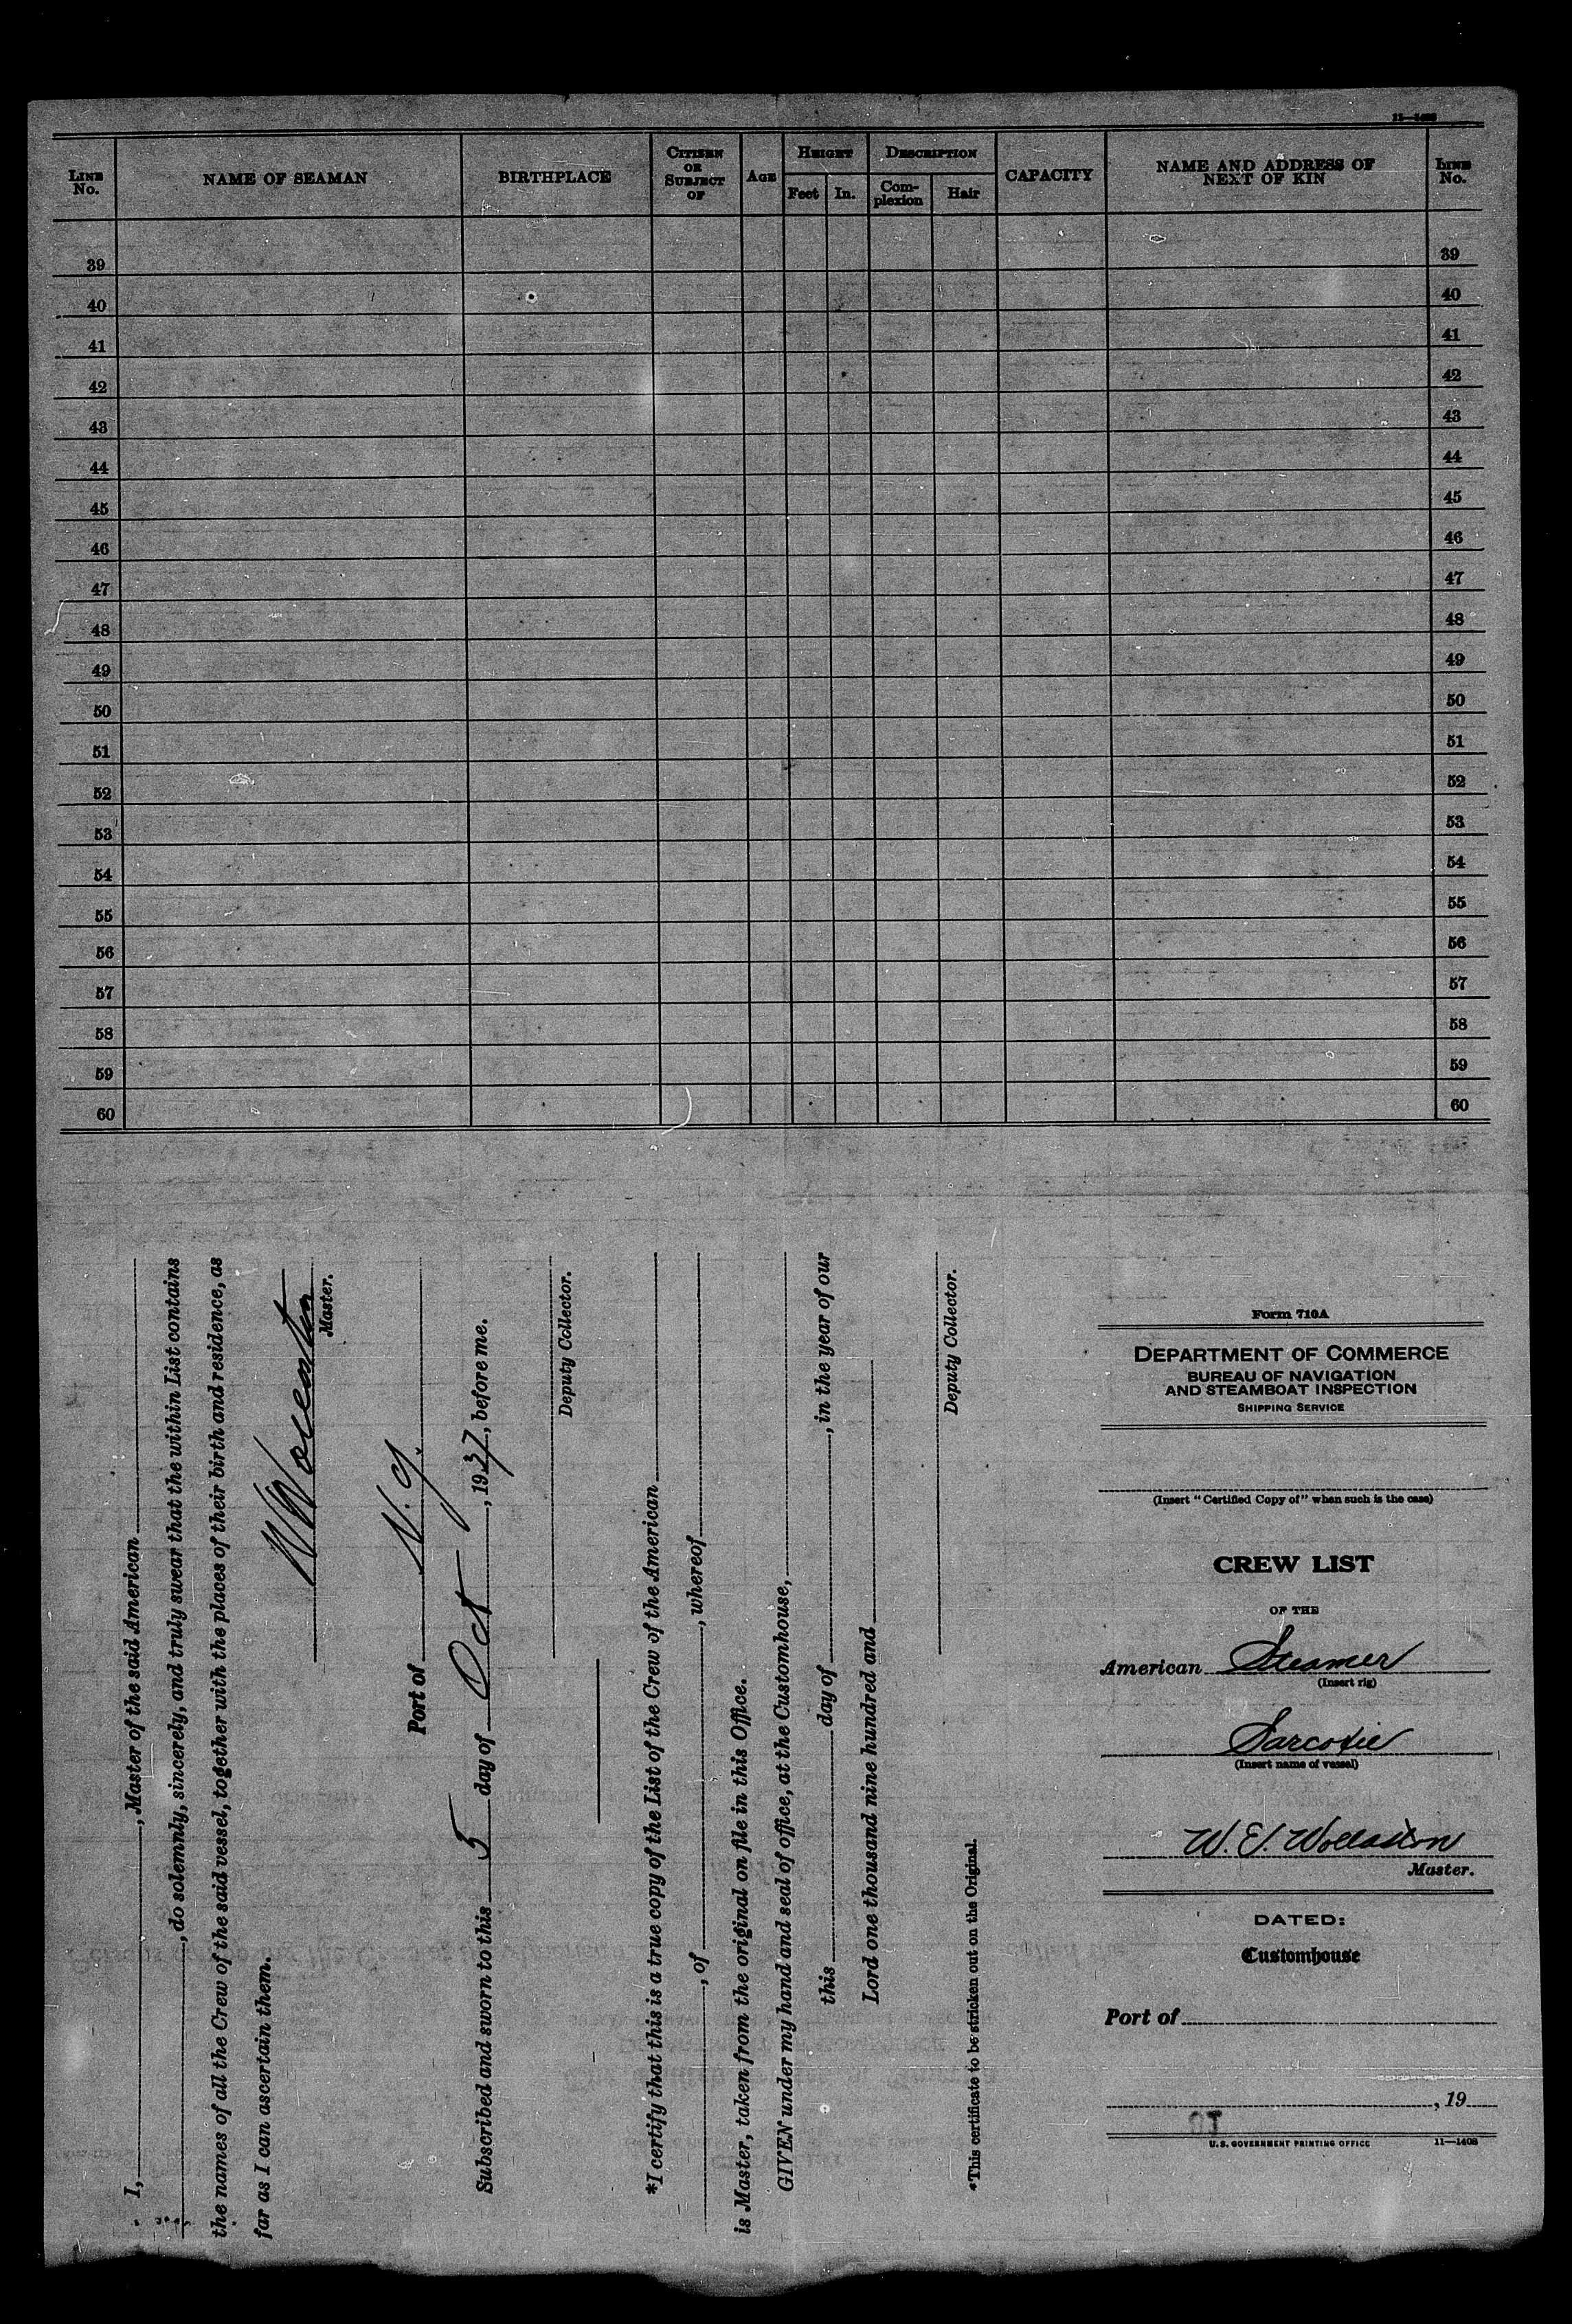 11—1408
LINE No. NAME OF SEAMAN BIRTHPLACE CITIZEN OR SUBJECT OF AGE HEIGHT Feet In. DESCRIPTION Complexion Hair CAPACITY NAME AND ADDRESS OF NEXT OF KIN LINE No.
39 39
40 40
41 41
42 42
43 43
44 44
45 45
46 46
47 47
48 48
49 49
50 50
51 51
52 52
53 53
54 54
55 55
56 56
57 57
58 58
59 59
60 60
I, , Master of the said American
, do solemnly, sincerely, and truly swear that the within List contains
the names of all the Crew of the said vessel, together with the places of their birth and residence, as
far as I can ascertain them.
Master.
Port of N.Y.
Subscribed and sworn to this 5 day of Oct , 1937, before me.
Deputy Collector.
*I certify that this is a true copy of the List of the Crew of the American
, of , whereof
is Master, taken from the original on file in this Office.
GIVEN under my hand and seal of office, at the Customhouse,
this day of , in the year of our
Lord one thousand nine hundred and
Deputy Collector.
*This certificate to be stricken out on the Original.
Form 710A
DEPARTMENT OF COMMERCE
BUREAU OF NAVIGATION
AND STEAMBOAT INSPECTION
SHIPPING SERVICE
(Insert "Certified Copy of" when such is the case)
CREW LIST
OF THE
American Steamer
(Insert rig)
Sarcoxie
(Insert name of vessel)
W. E. Wollaston
Master.
DATED:
Customhouse
Port of
, 19
U.S. GOVERNMENT PRINTING OFFICE 11—1408